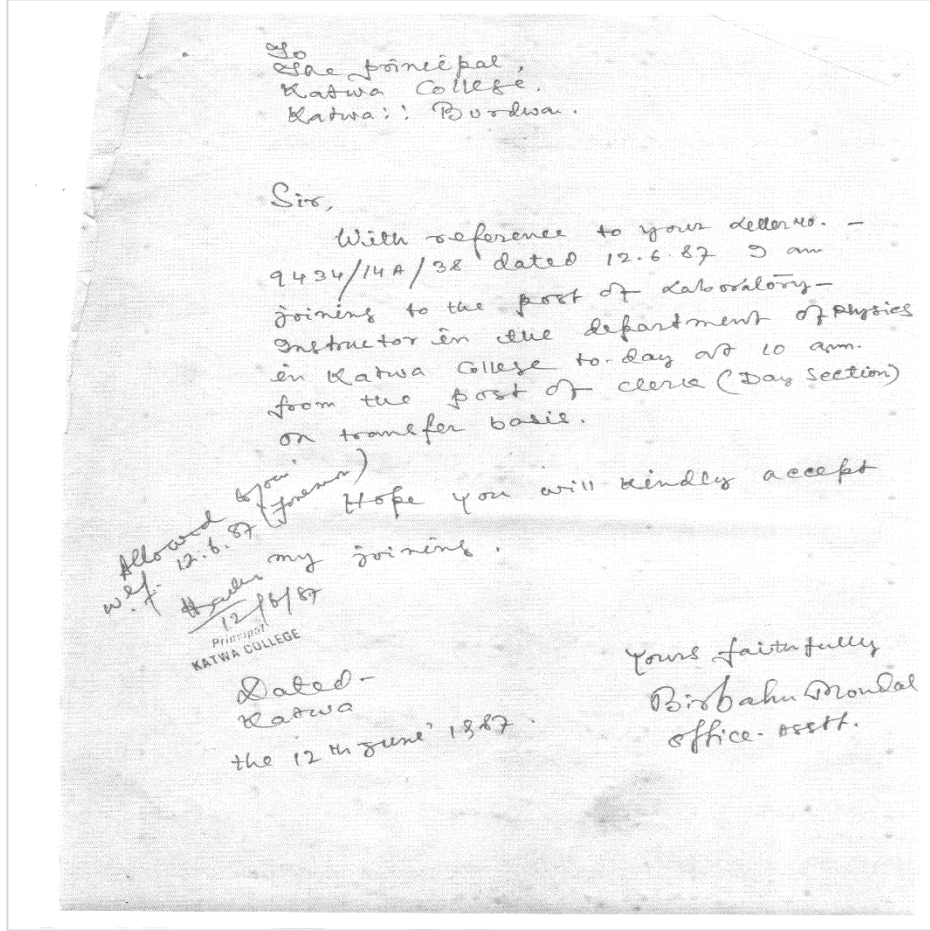 To
The principal,
Katwa College.
Katwa:: Burdwan.
Sir,
With reference to your Letter no. -
9434/14A/38 dated 12.6.87 I am
joining to the post of Laboratory-
Instructor in the department of Physics
in Katwa College to-day at 10 a.m.
from the post of clerk (Day Section)
on transfer basis.
Hope you will kindly accept
my joining.
Allowed to join
w.e.f. 12.6.87 (forenoon)
12/6/87
Principal
KATWA COLLEGE
Dated-
Katwa
the 12th June' 1987.
Yours faithfully
Birbahu Mondal
office-Asstt.